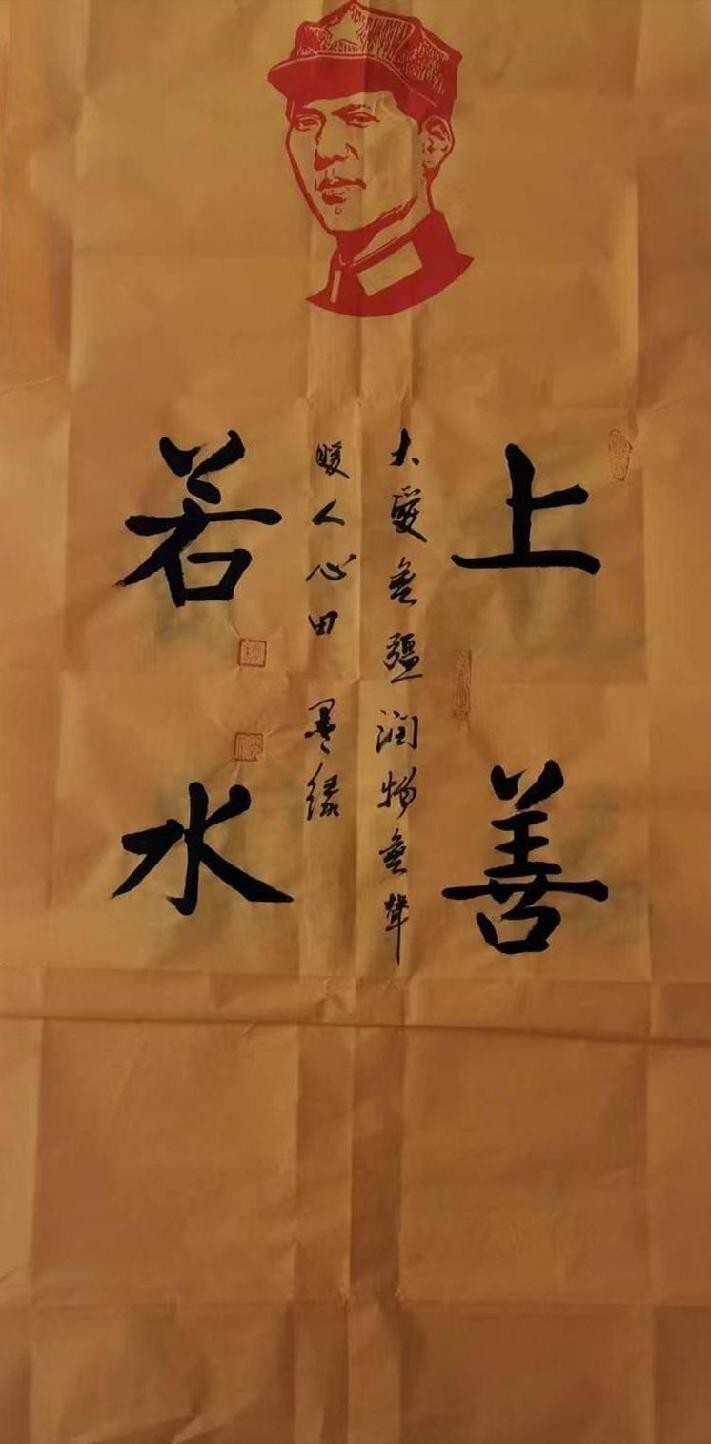 上善
大爱無疆润物無聲
暖人心田 墨缘
若水